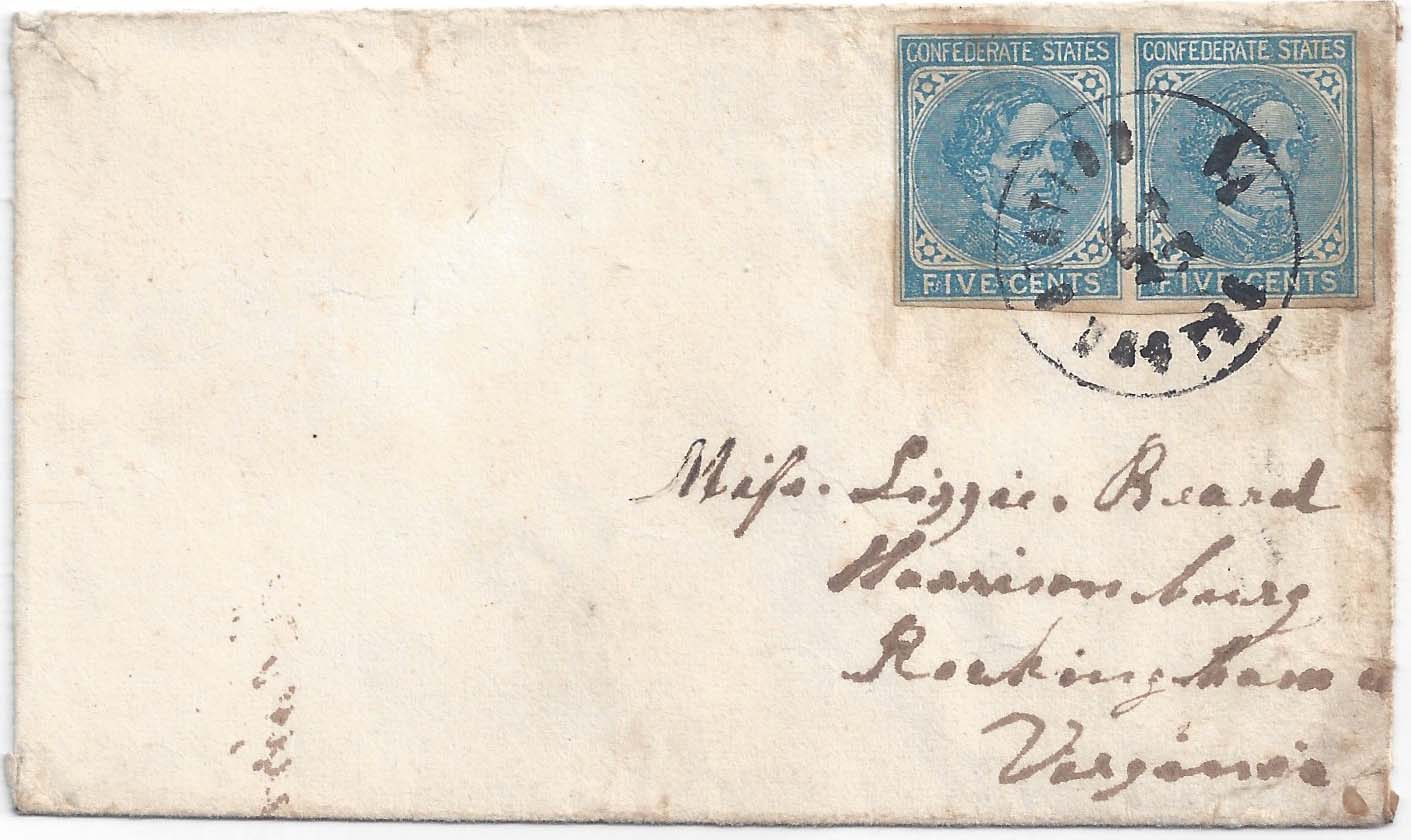 CONFEDERATE STATES CONFEDERATE STATES
FIVE CENTS FIVE CENTS
Miss. Lizzie. Beard
Harrisonburg
Rockingham
Virginia